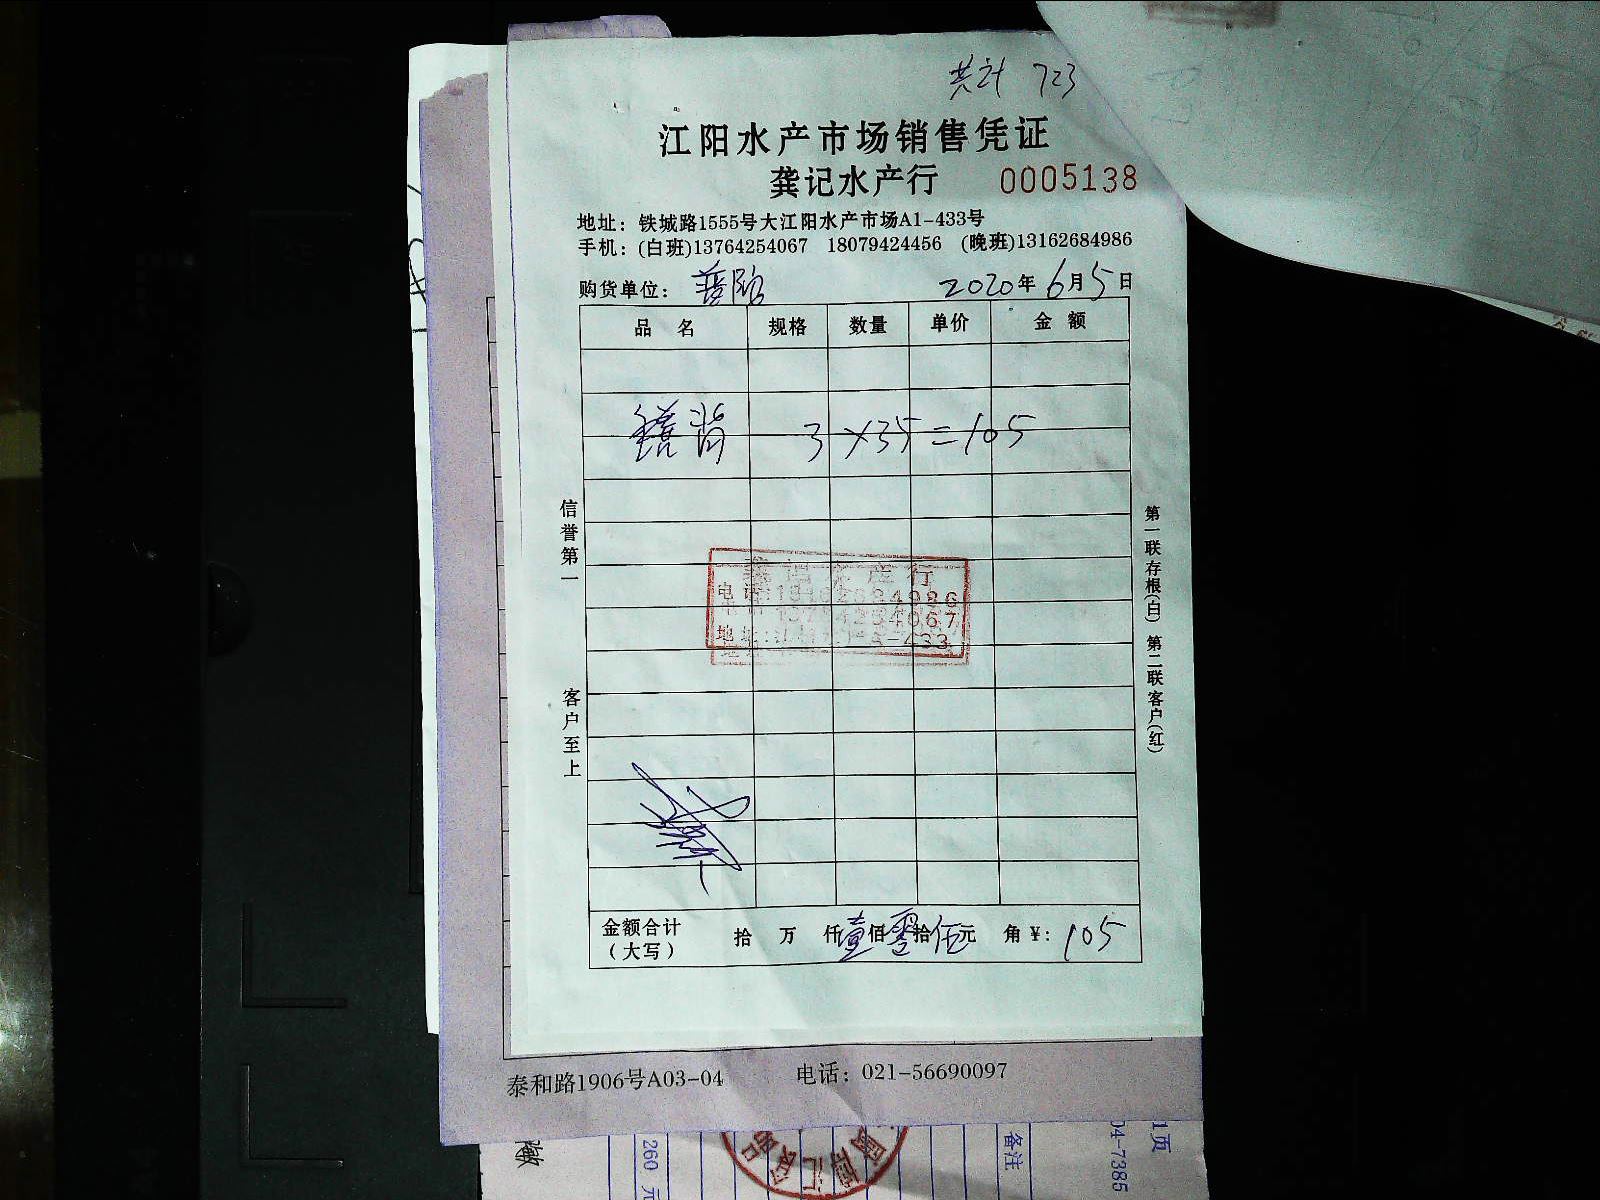 共计 723
江阳水产市场销售凭证
龚记水产行 0005138
地址：铁城路1555号大江阳水产市场A1-433号
手机：(白班)13764254067 18079424456 (晚班)13162684986
购货单位：
2020年6月5日
品 名 规格 数量 单价 金 额
3 ×35 =105
信誉第一
客户至上
龚记水产行
电话:13162684986
13764254067
第一联存根(白) 第二联客户(红)
金额合计 拾 万 仟壹佰零拾伍元 角 ¥: 105
(大写)
泰和路1906号A03-04 电话：021-56690097
260 元
备注
04-7385
1页